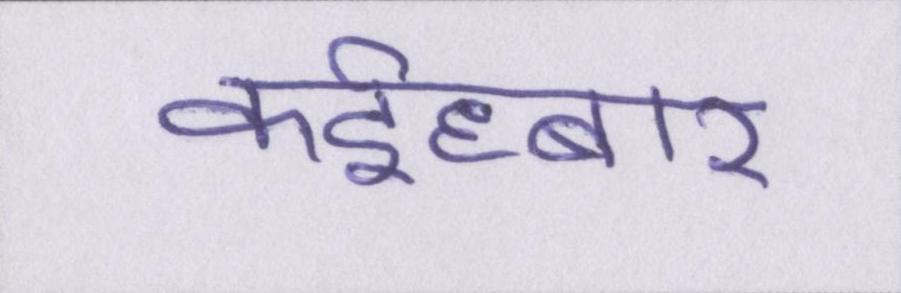 कईह्बार